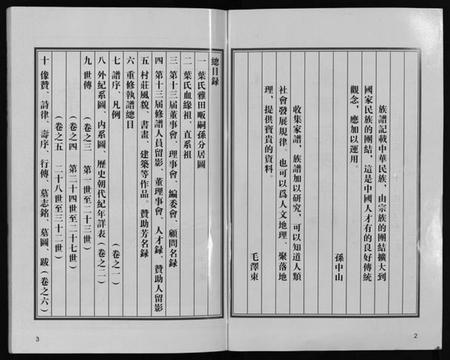 族譜記載中華民族，由宗族的團結擴大到
國家民族的團結，這是中國人才有的良好傳統
觀念，應加以運用。
孫中山
收集家譜，族譜加以研究，可以知道人類
社會發展規律，也可以爲人文地理、聚落地
理，提供寶貴的資料。
毛澤東
2
總目錄
一 葉氏雅田畈嗣孫分居圖
二 葉氏血緣祖、直系祖
三 第十三届董事會、理事會、編委會、顧問名録
四 第十三届修譜人員留影、董理事會、人才録、贊助人留影
五 村莊風貌、書畫、建築等作品。贊助芳名録
六 重修執譜總目
七 譜序、凡例 （卷之一）
八 外紀系圖、内系圖、歷史朝代紀年詳表（卷之二）
九 世傳
（卷之三 第一世至二十三世）
（卷之四 第二十四世至二十七世）
（卷之五 二十八世至三十二世）
十 像贊、詩律、壽序、行傳、墓志銘、墓圖、跋（卷之六）
3